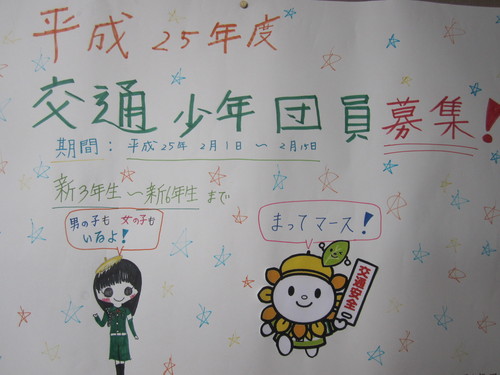 平成25年度
交通少年団員募集!
期間: 平成25年 2月1日 〜 2月15日
新3年生〜新6年生まで
男の子も 女の子も
いるよ!
まってマース!
交通安全